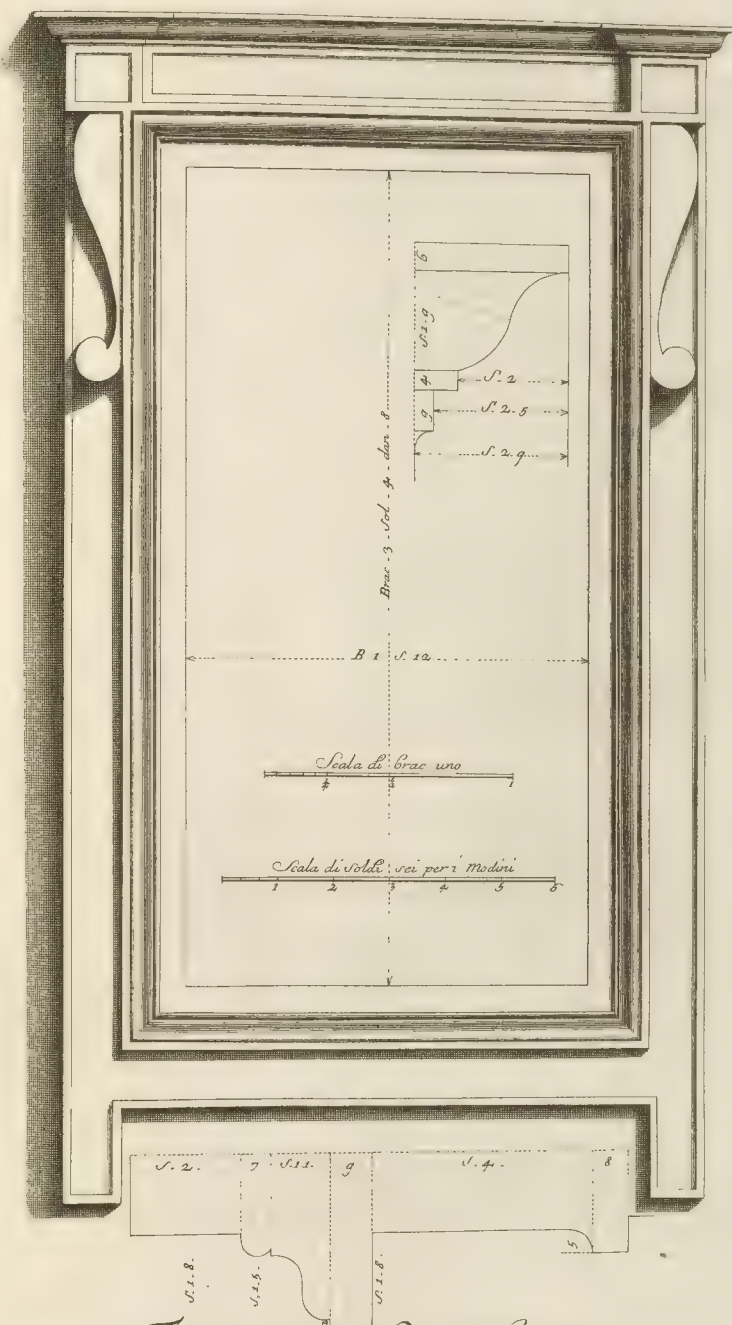 6
S. 1. 9
4
S. 2
9
S. 2. 5
S. 2. 9
Brac. 3. Sol. 4. dan. 8
B 1 S. 12
Scala di brac uno
1
Scala di soldi sei per i Modini
1 2 3 4 5 6
S. 2. 7 S. 11. 9 S. 4. 8
5
S. 1. 8.
S. 1. 5.
S. 1. 8.